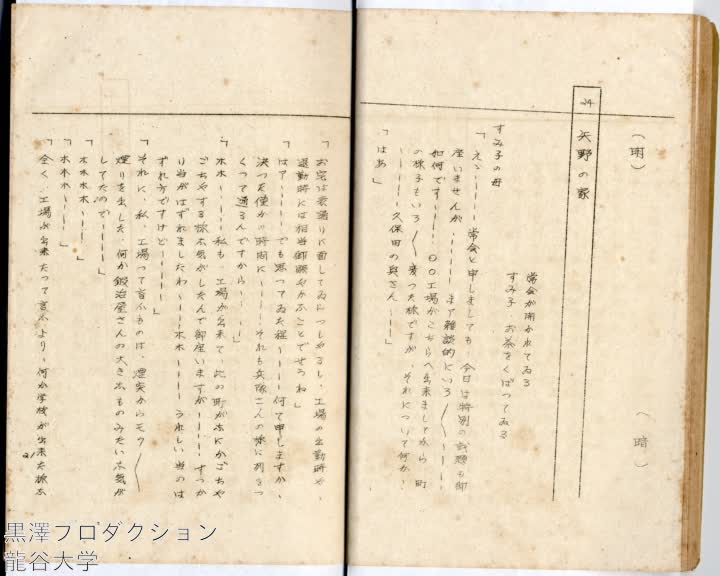 （明）
（暗）
24 矢野の家
常会が開かれてゐる
すみ子 お茶をくばつてゐる
すみ子の母
「えゝ――― 常会と申しましても 今日は特別の議題も御
座いませんが、――― まア雑談的にいろ〱―――
如何です――― 〇〇工場がこちらへ出来ましてから 町
の様子もいろ〱変つた様ですが、それについて何か、
――― 久保田の奥さん―――」
「はあ」
「お宅は表通りに面してゐらつしやるし、工場の出勤時や、
退勤時には相当御賑やかなことでせうね」
「はア――― でも思つてゐた程――― 何て申しますか、
決つた僅かの時間に――― それも兵隊さんの様に列をつ
くつて通るんですから―――」
「ホホ――― 私も、工場が出来て、此の町がなにかごちや
ごちやする様な気がしたんで御座いますが――― すつか
り当がはずれましたわ――― ホホ――― うれしい当のは
ずれ方ですけど―――」
「それに、私、工場つて言ふものは、煙突からモク〱
煙りを出した、何か鍛治屋さんの大きなものみたいな気が
してたので―――」
「ホホホホ―――」
「ホホホ―――」
「全く、工場が出来たつて言ふより、何か学校が出来た様な
21
黒澤プロダクション
龍谷大学